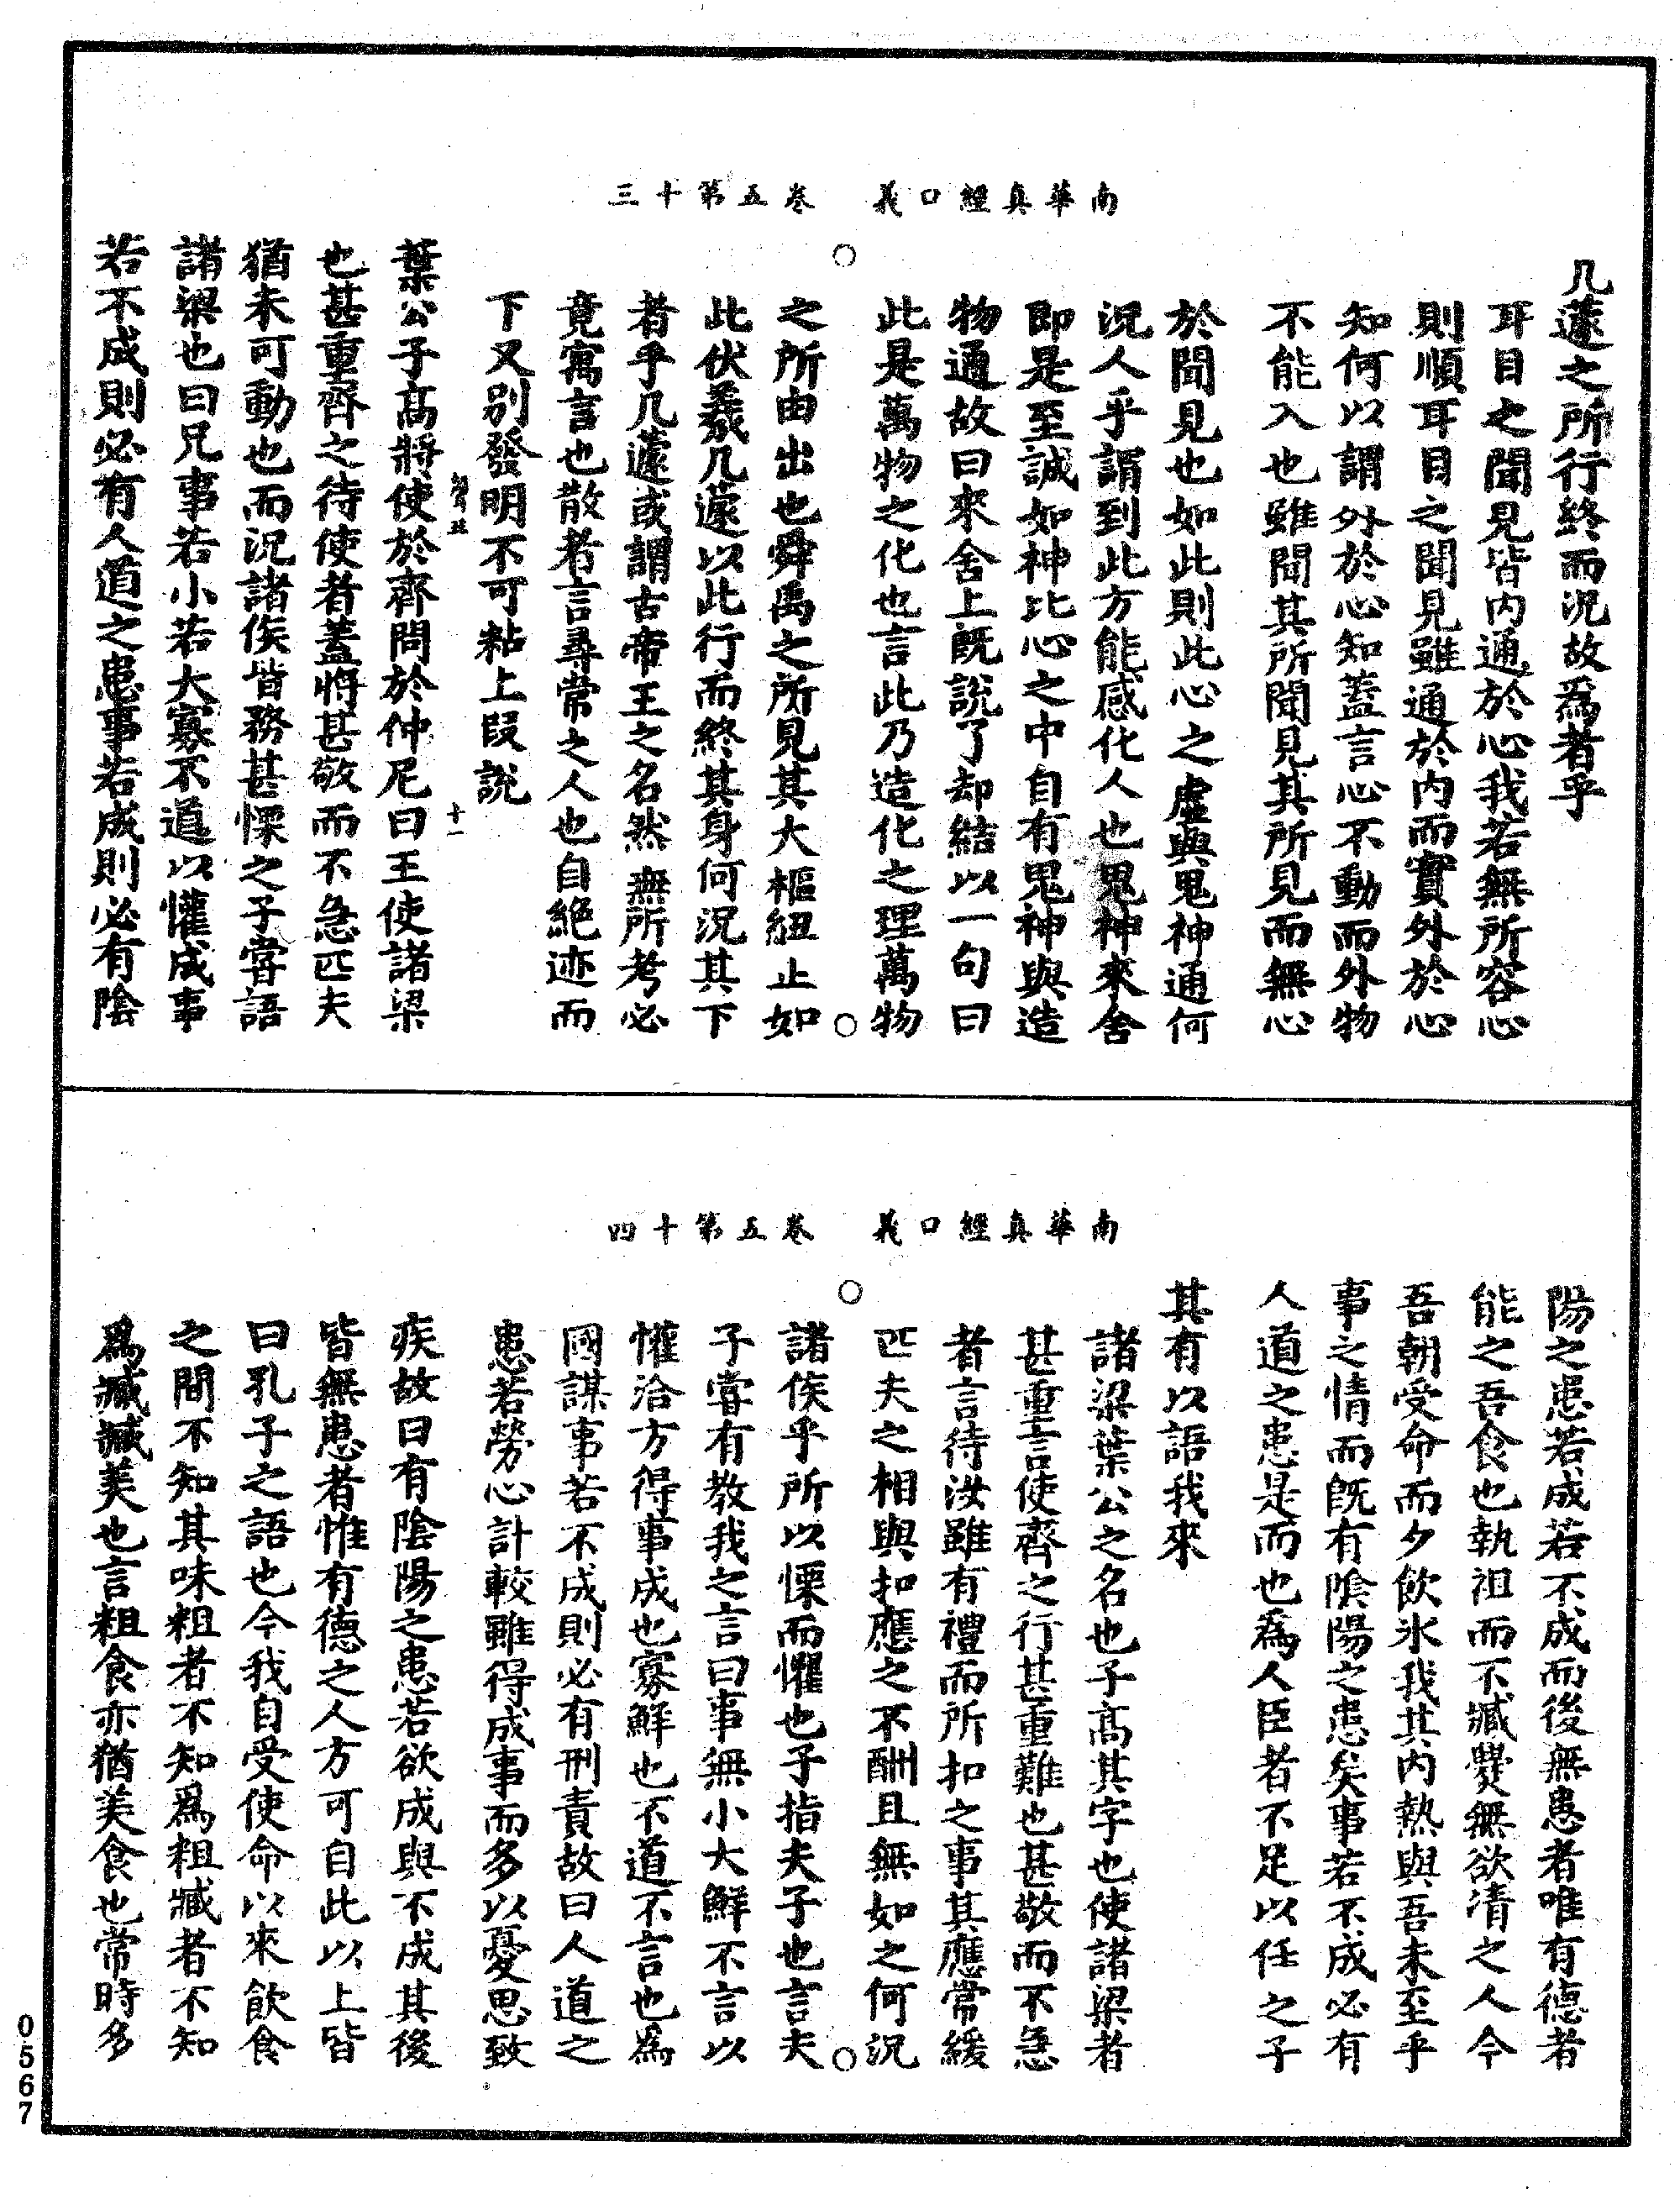 南華真經口義　卷五第十三
几蘧之所行終而況故爲者乎
耳目之聞見皆內通於心我若無所容心
則順耳目之聞見雖通於內而實外於心
知何以謂外於心知蓋言心不動而外物
不能入也雖聞其所聞見其所見而無心
於聞見也如此則此心之虛與鬼神通何
況人乎謂到此方能感化人也鬼神來舍
即是至誠如神比心之中自有鬼神與造
物通故曰來舍上旣說了却結以一句曰
此是萬物之化也言此乃造化之理萬物
之所由出也舜禹之所見其大樞紐止如
此伏羲几蘧以此行而終其身何況其下
者乎几蘧或謂古帝王之名然無所考必
竟寓言也散者言尋常之人也自絕迹而
下又別發明不可粘上段說
十一
葉公子高將使於齊問於仲尼曰王使諸梁
也甚重齊之待使者蓋將甚敬而不急匹夫
猶未可動也而況諸侯皆務甚慄之子嘗語
諸梁也曰兄事若小若大寡不道以懽成事
若不成則必有人道之患事若成則必有陰
南華真經口義　卷五第十四
陽之患若成若不成而後無患者唯有德者
能之吾食也執粗而不臧爨無欲清之人今
吾朝受命而夕飲氷我其內熱與吾未至乎
事之情而旣有陰陽之患矣事若不成必有
人道之患是而也爲人臣者不足以任之子
其有以語我來
諸梁葉公之名也子高其字也使諸梁者
甚重言使齊之行甚重難也甚敬而不急
者言待汝雖有禮而所扣之事其應常緩
匹夫之相與扣應之不酬且無如之何況
諸侯乎所以慄而懼也子指夫子也言夫
子嘗有教我之言曰事無小大鮮不言以
懽洽方得事成也寡鮮也不道不言也爲
國謀事若不成則必有刑責故曰人道之
患若勞心計較雖得成事而多以憂思致
疾故曰有陰陽之患若欲成與不成其後
皆無患者惟有德之人方可自此以上皆
曰孔子之語也今我自受使命以來飲食
之間不知其味粗者不知爲粗臧者不知
爲臧臧美也言粗食亦猶美食也常時多
0567